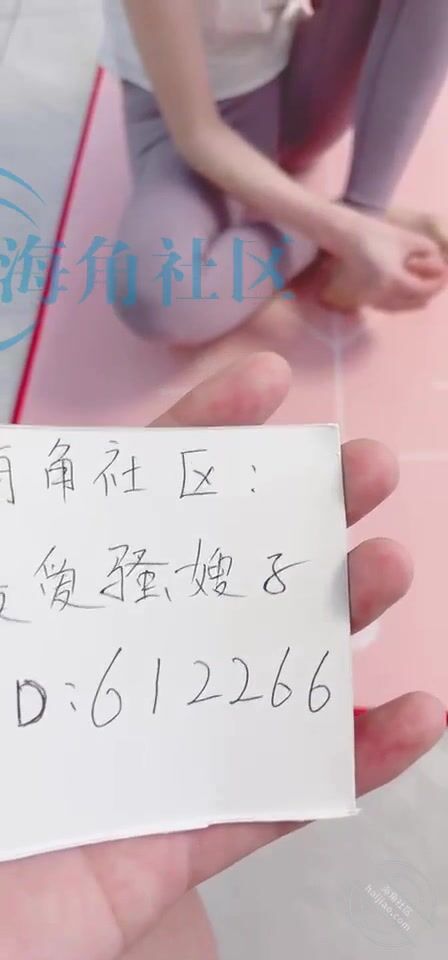 海角社区
角社区:
爱骚嫂子
D:612266
海角社区
haijiao.com